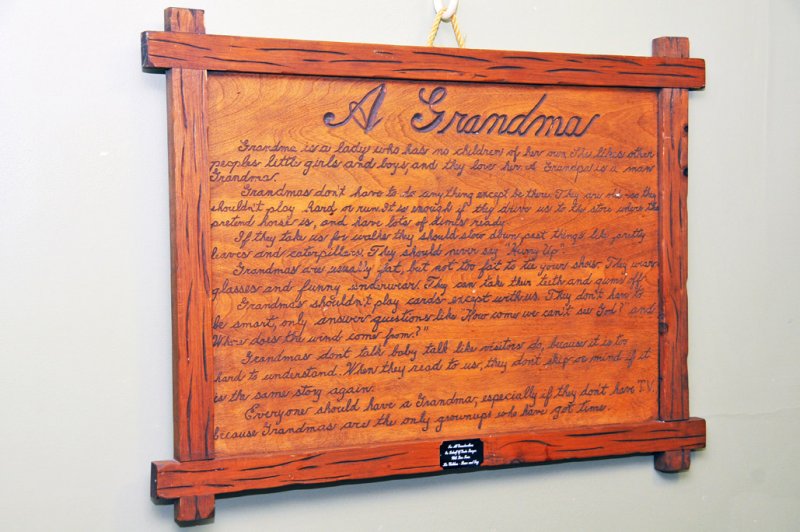 A Grandma
Grandma is a lady who has no children of her own. She likes other
peoples little girls and boys, and they love her. A Grandpa is a man
Grandma.
Grandmas don't have to do anything except be there. They are old so they
shouldn't play hard or run. It is enough if they drive us to the store where the
pretend horse is, and have lots of dimes ready.
If they take us for walks they should slow down past things like pretty
leaves and caterpillars. They should never say "Hurry Up".
Grandmas are usually fat, but not too fat to tie your shoes. They wear
glasses and funny underwear. They can take their teeth and gums off.
Grandmas shouldn't play cards except with us. They don't have to
be smart, only answer questions like "How come we can't see God?" and
"Where does the wind come from?"
Grandmas don't talk baby talk like visitors do, because it is too
hard to understand. When they read to us, they don't skip or mind if it
is the same story again.
Everyone should have a Grandma, especially if they don't have T.V.
because Grandmas are the only grownups who have got time.